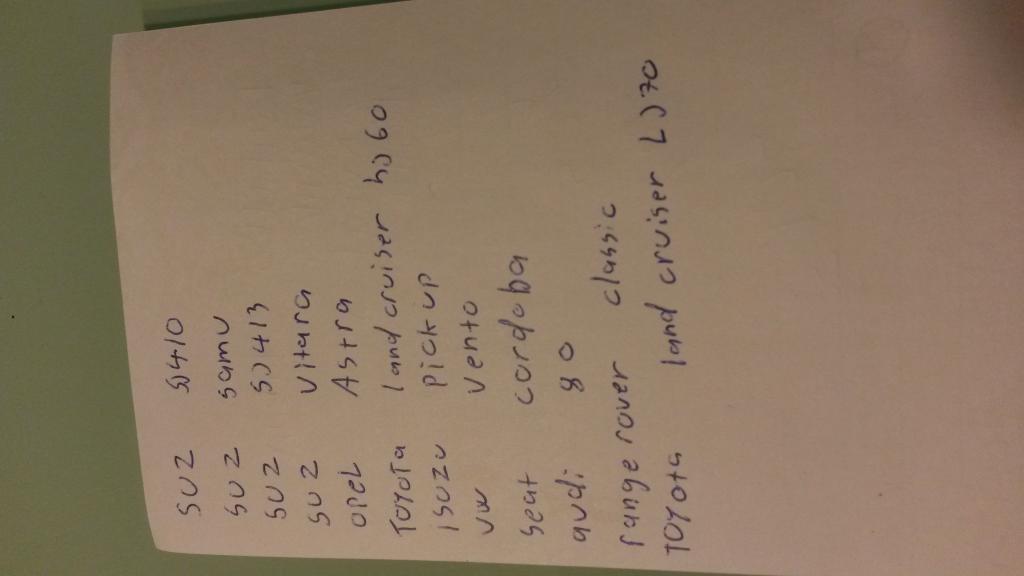 SUZ SJ410
SUZ samu
SUZ SJ413
SUZ Vitara
opel Astra
Toyota land cruiser hJ60
isuzu pick up
vw vento
seat cordoba
audi 80
range rover classic
Toyota land cruiser LJ70